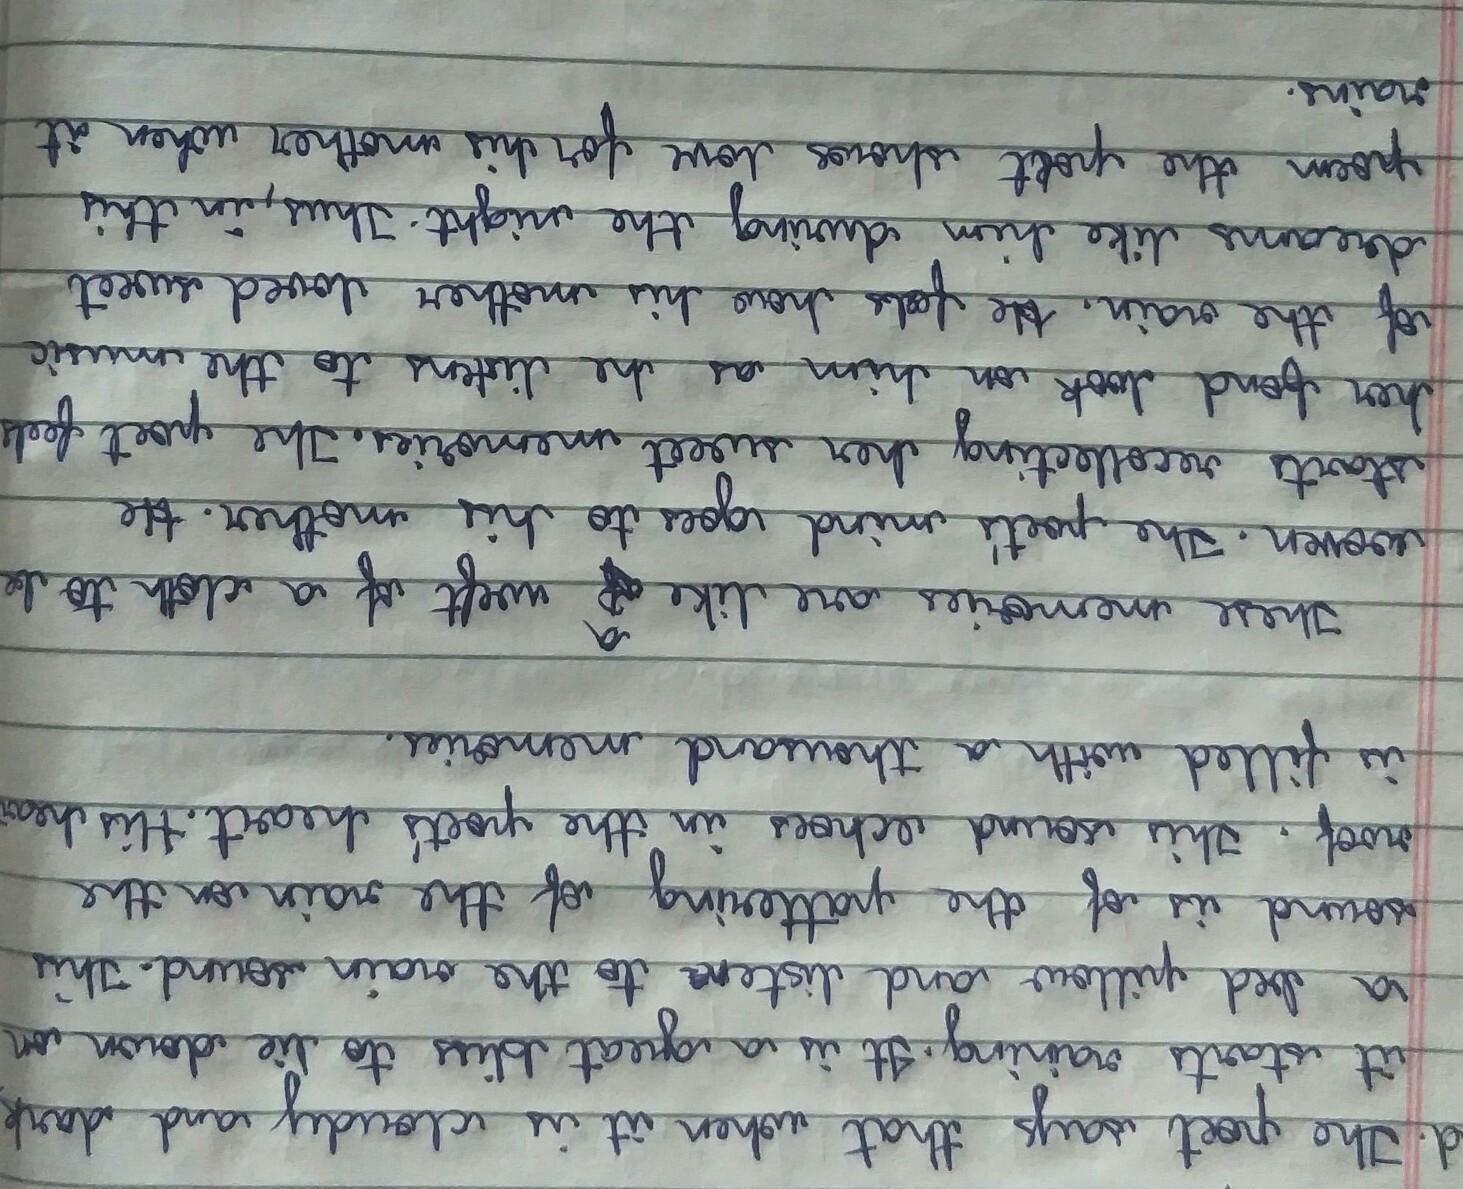 d. The poet says that when it is cloudy and dark
it starts raining. It is a great bliss to lie down on
a bed pillow and listen to the rain sound. This
sound is of the pattering of the rain on the
roof. This sound echoes in the poet's heart. His hear
is filled with a thousand memories.
These memories are like a weft of a cloth to be
woven. The poet's mind goes to his mother. He
starts recollecting her sweet memories. The poet feels
her fond look on him as he listens to the music
of the rain. He feels how his mother loved sweet
dreams like him during the night. Thus, in this
poem the poet shows love for his mother when it
rains.